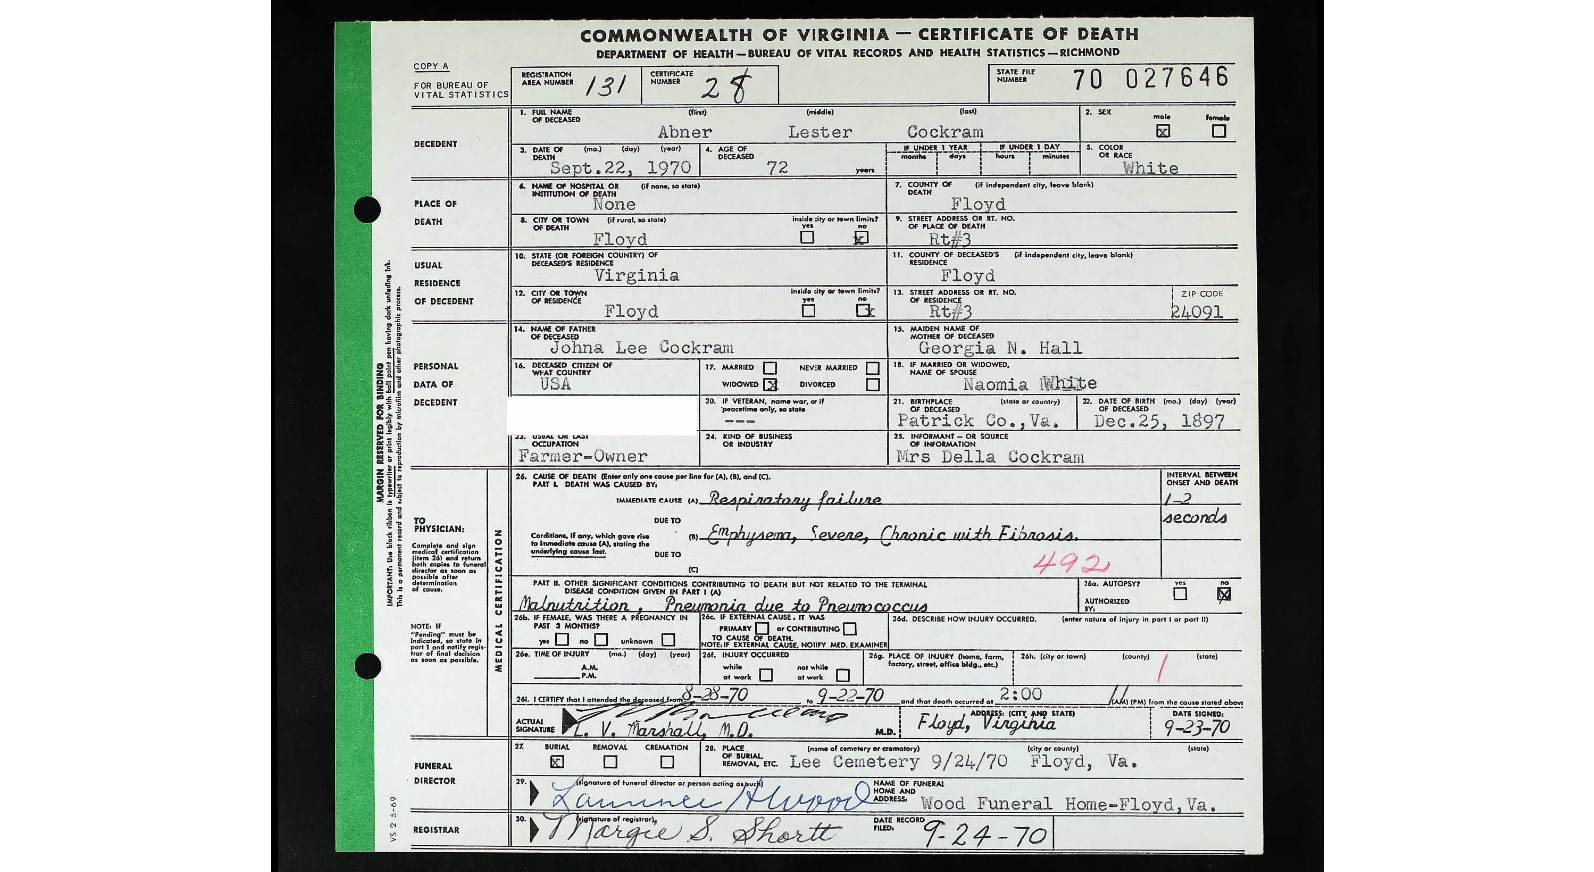 COMMONWEALTH OF VIRGINIA — CERTIFICATE OF DEATH
DEPARTMENT OF HEALTH—BUREAU OF VITAL RECORDS AND HEALTH STATISTICS—RICHMOND
COPY A
FOR BUREAU OF VITAL STATISTICS
REGISTRATION AREA NUMBER 131
CERTIFICATE NUMBER 28
STATE FILE NUMBER 70 027646
DECEDENT
1. FULL NAME OF DECEASED (first) (middle) (last)
Abner Lester Cockram
2. SEX male ☒ female ☐
3. DATE OF DEATH (mo.) (day) (year)
Sept.22, 1970
4. AGE OF DECEASED 72 years
IF UNDER 1 YEAR months days
IF UNDER 1 DAY hours minutes
5. COLOR OR RACE
White
PLACE OF DEATH
6. NAME OF HOSPITAL OR INSTITUTION OF DEATH (if none, so state)
None
7. COUNTY OF DEATH (if independent city, leave blank)
Floyd
8. CITY OR TOWN OF DEATH (if rural, so state)
Floyd
inside city or town limits? yes ☐ no ☒
9. STREET ADDRESS OR RT. NO. OF PLACE OF DEATH
Rt#3
USUAL RESIDENCE OF DECEDENT
10. STATE (OR FOREIGN COUNTRY) OF DECEASED'S RESIDENCE
Virginia
11. COUNTY OF DECEASED'S RESIDENCE (if independent city, leave blank)
Floyd
12. CITY OR TOWN OF RESIDENCE
Floyd
inside city or town limits? yes ☐ no ☒
13. STREET ADDRESS OR RT. NO. OF RESIDENCE
Rt#3
ZIP CODE
24091
PERSONAL DATA OF DECEDENT
14. NAME OF FATHER OF DECEASED
Johna Lee Cockram
15. MAIDEN NAME OF MOTHER OF DECEASED
Georgia N. Hall
16. DECEASED CITIZEN OF WHAT COUNTRY
USA
17. MARRIED ☐ NEVER MARRIED ☐
WIDOWED ☒ DIVORCED ☐
18. IF MARRIED OR WIDOWED, NAME OF SPOUSE
Naomia White
20. IF VETERAN, name war, or if peacetime only, so state
---
21. BIRTHPLACE OF DECEASED (state or country)
Patrick Co.,Va.
22. DATE OF BIRTH (mo.) (day) (year) OF DECEASED
Dec.25, 1897
23. USUAL OR LAST OCCUPATION
Farmer-Owner
24. KIND OF BUSINESS OR INDUSTRY
25. INFORMANT — OR SOURCE OF INFORMATION
Mrs Della Cockram
MARGIN RESERVED FOR BINDING
IMPORTANT: Use black ribbon is typewriter or print legibly with ball point pen having dark unfading ink.
This is a permanent record and subject to reproduction by microfilm and other photographic process.
TO PHYSICIAN:
Complete and sign medical certification (item 26) and return both copies to funeral director as soon as possible after determination of cause.
NOTE: IF "Pending" must be indicated, so state in part I and notify registrar of final decision as soon as possible.
MEDICAL CERTIFICATION
26. CAUSE OF DEATH (Enter only one cause per line for (A), (B), and (C).
PART I. DEATH WAS CAUSED BY:
INTERVAL BETWEEN ONSET AND DEATH
IMMEDIATE CAUSE (A) Respiratory failure
1-2 seconds
DUE TO
Conditions, if any, which gave rise to immediate cause (A), stating the underlying cause last.
(B) Emphysema, Severe, Chronic with Fibrosis.
DUE TO
(C)
492
PART II. OTHER SIGNIFICANT CONDITIONS CONTRIBUTING TO DEATH BUT NOT RELATED TO THE TERMINAL DISEASE CONDITION GIVEN IN PART I (A)
Malnutrition, Pneumonia due to Pneumococcus
26a. AUTOPSY? yes ☐ no ☒
AUTHORIZED BY:
26b. IF FEMALE, WAS THERE A PREGNANCY IN PAST 3 MONTHS?
yes ☐ no ☐ unknown ☐
26c. IF EXTERNAL CAUSE, IT WAS
PRIMARY ☐ or CONTRIBUTING ☐
TO CAUSE OF DEATH.
NOTE: IF EXTERNAL CAUSE, NOTIFY MED. EXAMINER
26d. DESCRIBE HOW INJURY OCCURRED. (enter nature of injury in part I or part II)
26e. TIME OF INJURY (mo.) (day) (year)
A.M.
P.M.
26f. INJURY OCCURRED
while at work ☐ not while at work ☐
26g. PLACE OF INJURY (home, farm, factory, street, office bldg., etc.)
26h. (city or town) (county) (state)
26i. I CERTIFY that I attended the deceased from 8-28-70 to 9-22-70 and that death occurred at 2:00 (AM) (PM) from the cause stated above
ACTUAL SIGNATURE
L. V. Marshall, M.D. M.D.
ADDRESS: (CITY, AND STATE)
Floyd, Virginia
DATE SIGNED:
9-23-70
FUNERAL DIRECTOR
27. BURIAL ☒ REMOVAL ☐ CREMATION ☐
28. PLACE OF BURIAL, REMOVAL, ETC. (name of cemetery or crematory) (city or county) (state)
Lee Cemetery 9/24/70 Floyd, Va.
29. (signature of funeral director or person acting as such)
NAME OF FUNERAL HOME AND ADDRESS:
Wood Funeral Home-Floyd,Va.
REGISTRAR
30. (signature of registrar)
Margie S. Shortt
DATE RECORD FILED:
9-24-70
VS 2 5-69